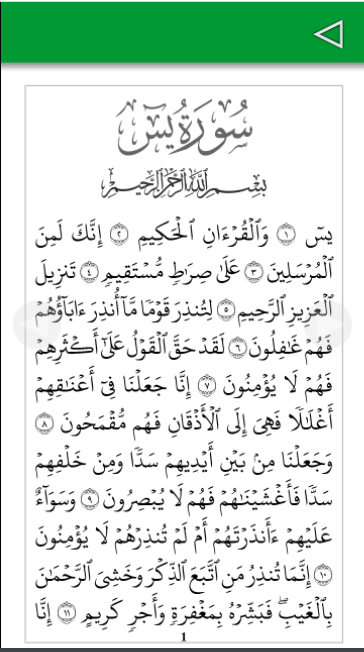 سُورَةُ يسٓ
بِسْمِ اللَّهِ الرَّحْمَٰنِ الرَّحِيمِ
يسٓ ۝١ وَٱلْقُرْءَانِ ٱلْحَكِيمِ ۝٢ إِنَّكَ لَمِنَ
ٱلْمُرْسَلِينَ ۝٣ عَلَىٰ صِرَٰطٍ مُّسْتَقِيمٍ ۝٤ تَنزِيلَ
ٱلْعَزِيزِ ٱلرَّحِيمِ ۝٥ لِتُنذِرَ قَوْمًا مَّآ أُنذِرَ ءَابَآؤُهُمْ
فَهُمْ غَٰفِلُونَ ۝٦ لَقَدْ حَقَّ ٱلْقَوْلُ عَلَىٰٓ أَكْثَرِهِمْ
فَهُمْ لَا يُؤْمِنُونَ ۝٧ إِنَّا جَعَلْنَا فِىٓ أَعْنَٰقِهِمْ
أَغْلَٰلًا فَهِىَ إِلَى ٱلْأَذْقَانِ فَهُم مُّقْمَحُونَ ۝٨
وَجَعَلْنَا مِنۢ بَيْنِ أَيْدِيهِمْ سَدًّا وَمِنْ خَلْفِهِمْ
سَدًّا فَأَغْشَيْنَٰهُمْ فَهُمْ لَا يُبْصِرُونَ ۝٩ وَسَوَآءٌ
عَلَيْهِمْ ءَأَنذَرْتَهُمْ أَمْ لَمْ تُنذِرْهُمْ لَا يُؤْمِنُونَ
۝١٠ إِنَّمَا تُنذِرُ مَنِ ٱتَّبَعَ ٱلذِّكْرَ وَخَشِىَ ٱلرَّحْمَٰنَ
بِٱلْغَيْبِ ۖ فَبَشِّرْهُ بِمَغْفِرَةٍ وَأَجْرٍ كَرِيمٍ ۝١١ إِنَّا
1